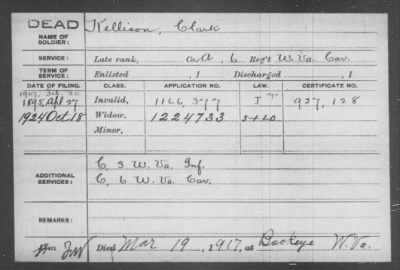 DEAD
NAME OF SOLDIER:
Kellison, Clark
SERVICE:
Late rank, Co. A, 6 Reg't W. Va. Cav.
TERM OF SERVICE:
Enlisted , 1 Discharged , 1
DATE OF FILING. CLASS. APPLICATION NO. LAW. CERTIFICATE NO.
1895, Apl 27 Invalid, 1166,377 I 927,128
1924 Oct 18 Widow, 1224733
Minor,
ADDITIONAL SERVICES:
C, 3 W. Va. Inf.
C, 6 W. Va. Cav.
REMARKS:
Died Mar 19, 1917, at Buckeye W. Va.